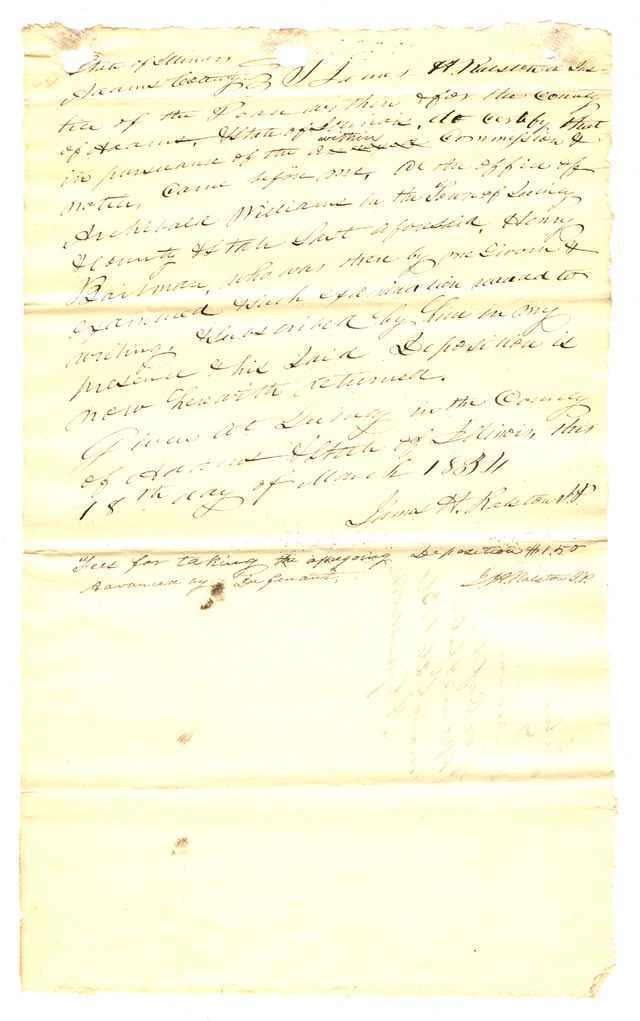 State of Illinois
Adams County } I James H. Ralston a Jus-
tice of the Peace within & for the County
of Adams, & State of Illinois, do certify that
in pursuance of the within Commission &
notice, Came before me, at the office of
Archibald Williams in the Town of Quincy
& County & State last aforesaid, Henry
who was then by me Sworn &
examined & such examination reduced to
writing, & subscribed by him in my
presence & his said Deposition is
now herewith returned.
Given at Quincy in the County
of Adams & State of Illinois, this
18th day of March 1834
James H. Ralston J.P.
Fees for taking the Deposition $1.50
Advanced by Defendant.
J H Ralston J.P.